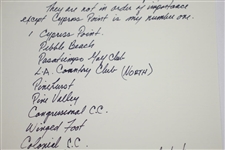 They are not in order of importance
except Cypress Point is my number one.
1 Cypress Point.
Pebble Beach
Pasatiempo Golf Club
L.A. Country Club (North)
Pinehurst
Pine Valley
Congressional C.C.
Winged Foot
Colonial C.C.